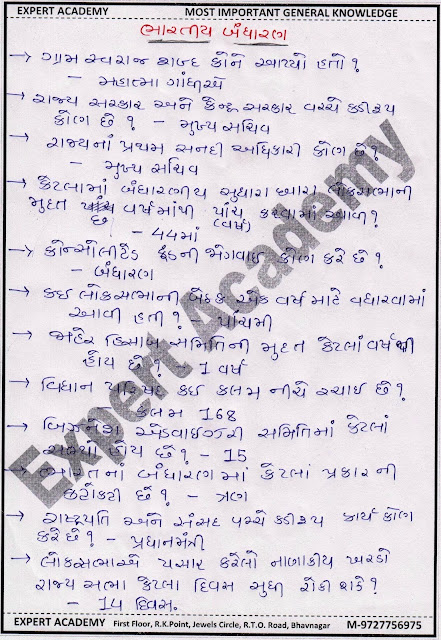 EXPERT ACADEMY MOST IMPORTANT GENERAL KNOWLEDGE
ભારતીય બંધારણ
→ ગ્રામ સ્વરાજ શબ્દ કોને આપ્યો હતો ?
- મહાત્મા ગાંધીએ
→ રાજ્ય સરકાર અને કેન્દ્ર સરકાર વચ્ચે કડીરૂપ
કોણ છે ? - મુખ્ય સચિવ
→ રાજ્યનાં પ્રથમ સનદી અધિકારી કોણ છે ?
- મુખ્ય સચિવ
→ કેટલામાં બંધારણીય સુધારા દ્વારા લોકસભાની
મુદત છ વર્ષમાંથી પાંચ (વર્ષ) કરવામાં આવી ?
- 44માં
→ કોન્સોલીટેડ ફંડની જોગવાઈ કોણ કરે છે ?
- બંધારણ
→ કઈ લોકસભાની બેઠક એક વર્ષ માટે વધારવામાં
આવી હતી ? - પાંચમી
→ જાહેર હિસાબ સમિતિની મુદત કેટલાં વર્ષની
હોય છે ? - 1 વર્ષ
→ વિધાન પરિષદ કઈ કલમ નીચે રચાઈ છે ?
- કલમ 168
→ બિઝનેશ એડવાઈઝરી સમિતિમાં કેટલાં
સભ્યો હોય છે ? - 15
→ ભારતનાં બંધારણમાં કેટલાં પ્રકારની
કટોકટી છે ? - ત્રણ
→ રાષ્ટ્રપતિ અને સંસદ વચ્ચે કડીરૂપ કાર્ય કોણ
કરે છે ? - પ્રધાનમંત્રી
→ લોકસભાએ પસાર કરેલો નાણાકીય ખરડો
રાજ્ય સભા કેટલા દિવસ સુધી રોકી શકે ?
- 14 દિવસ.
Expert Academy
EXPERT ACADEMY First Floor, R.K.Point, Jewels Circle, R.T.O. Road, Bhavnagar M-9727756975